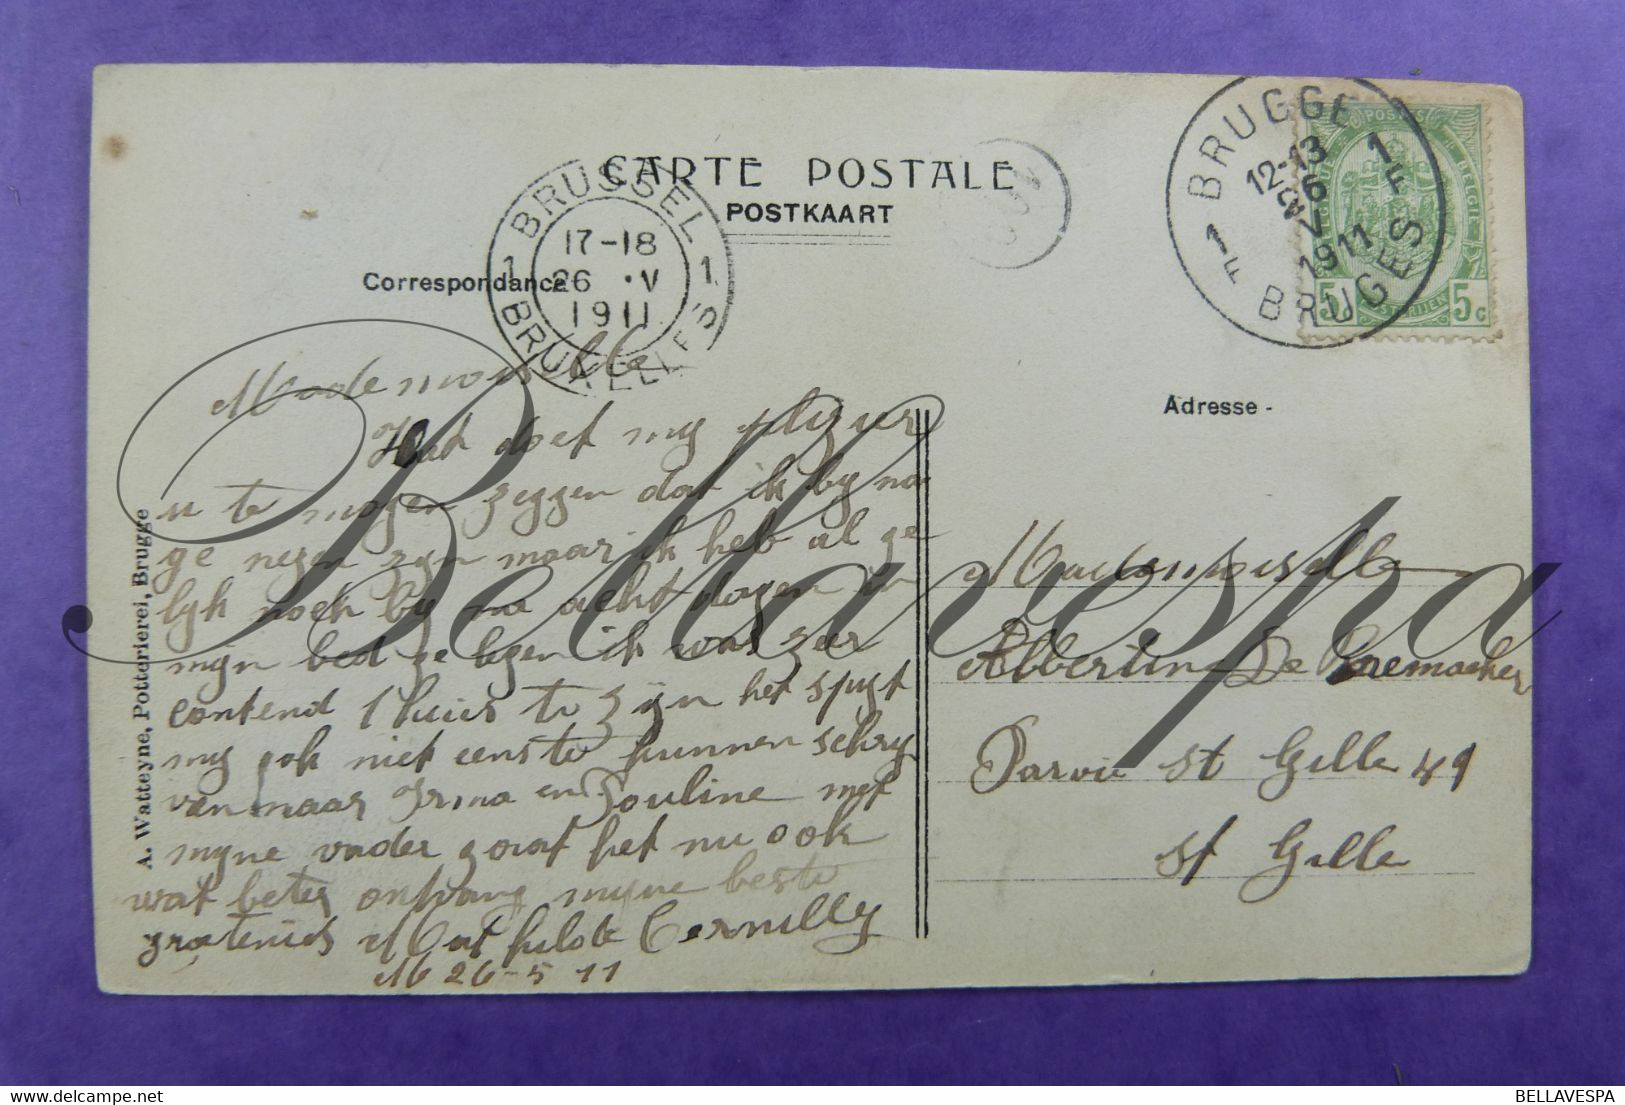 CARTE POSTALE
POSTKAART
Correspondance
BRUSSEL
17-18
26 · V
1911
1 1
BRUXELLES
BRUGGE
12-13
6
V
1911
1 F
1 F
BRUGES
POSTES
BELGIE
5 5c
Adresse -
Mademoiselle
Hat doet my plizier
u te mogen zeggen dat ik by na
ge nezen zyn maar ik heb al ge
lyk noch by na acht dagen in
mijn bed ge legen ik was zeer
contend thuis te zijn het spyt
my ook niet eens te kunnen schry
ven maar Irma en Pouline met
myne vader gaat het nu ook
wat beter ontvang myne beste
groetenis Mat hilde Cornilly
M 26-5 11
Mademoiselle
Albertin De Raemacker
Parvie st Gille 49
st Gille
A. Watteyne, Potterierei, Brugge
Bellavespa
BELLAVESPA